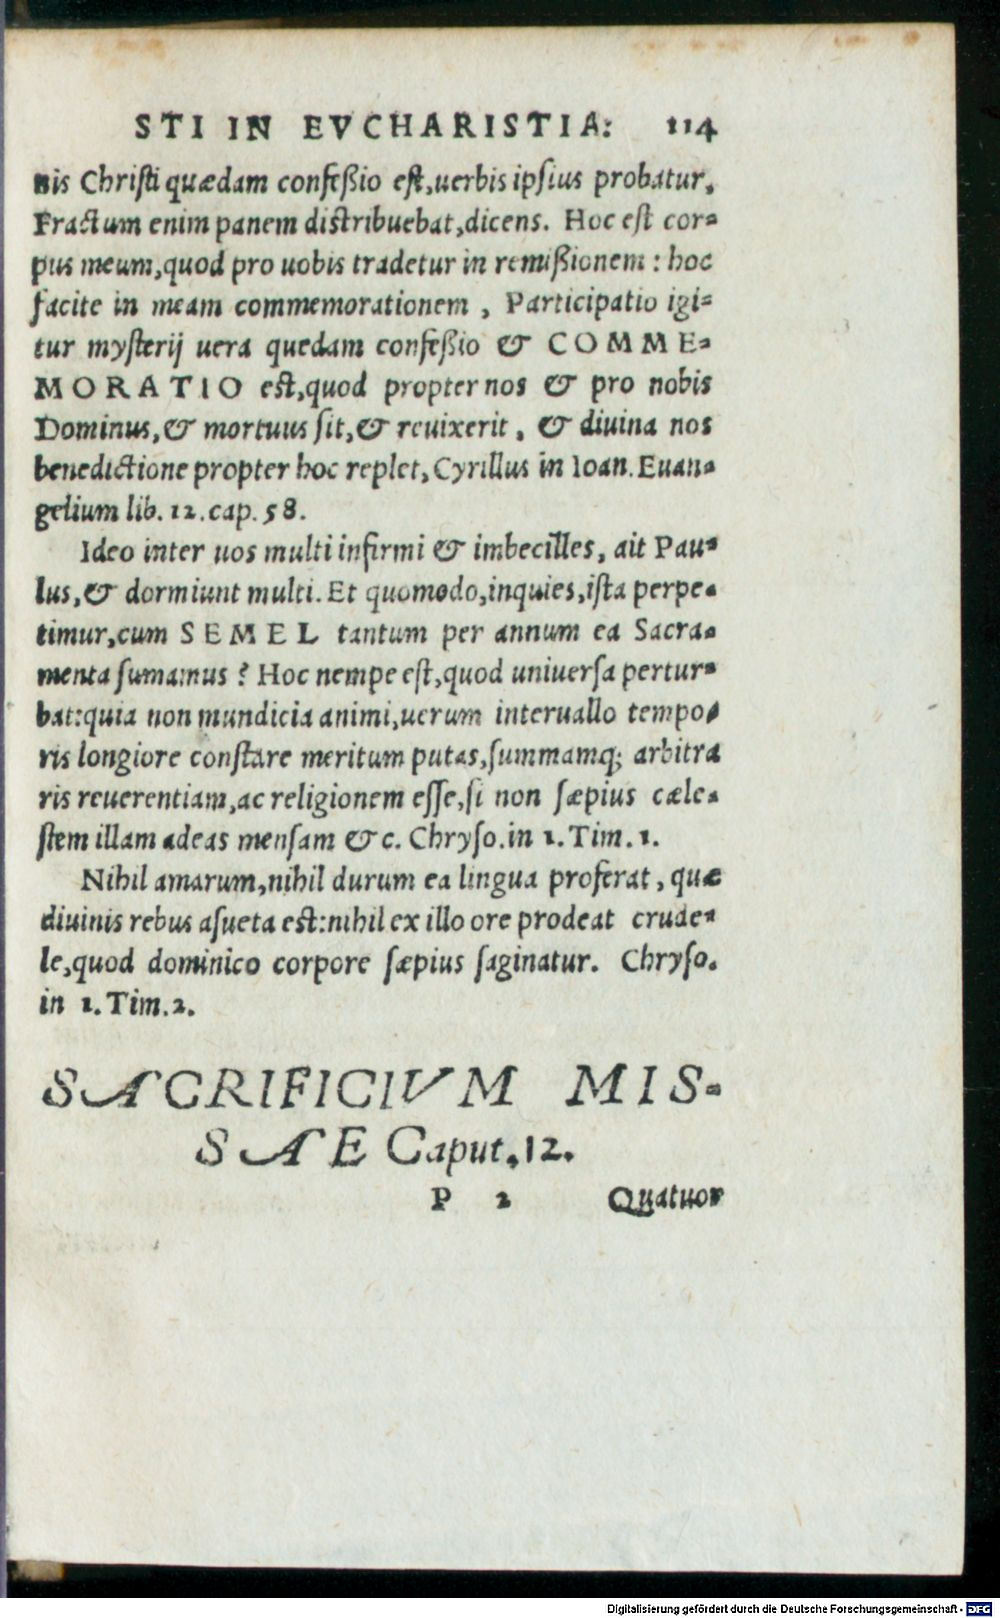 STI IN EVCHARISTIA: 114
nis Christi quædam confeßio est, uerbis ipsius probatur.
Fractum enim panem distribuebat, dicens. Hoc est cor-
pus meum, quod pro uobis tradetur in remißionem: hoc
facite in meam commemorationem, Participatio igi-
tur mysterij uera quedam confeßio & COMME-
MORATIO est, quod propter nos & pro nobis
Dominus, & mortuus sit, & reuixerit, & diuina nos
benedictione propter hoc replet, Cyrillus in Ioan. Euan-
gelium lib. 12. cap. 58.
Ideo inter uos multi infirmi & imbecilles, ait Pau-
lus, & dormiunt multi. Et quomodo, inquies, ista perpe-
timur, cum SEMEL tantum per annum ea Sacra-
menta sumamus? Hoc nempe est, quod uniuersa pertur-
bat: quia non mundicia animi, uerum interuallo tempo-
ris longiore constare meritum putas, summamq; arbitra
ris reuerentiam, ac religionem esse, si non sæpius cæle-
stem illam adeas mensam &c. Chryso. in 1. Tim. 1.
Nihil amarum, nihil durum ea lingua proferat, quæ
diuinis rebus asueta est: nihil ex illo ore prodeat crude-
le, quod dominico corpore sæpius saginatur. Chryso.
in 1. Tim. 2.
SACRIFICIVM MIS-
SAE Caput. 12.
P 2 Quatuor
Digitalisierung gefördert durch die Deutsche Forschungsgemeinschaft - DFG